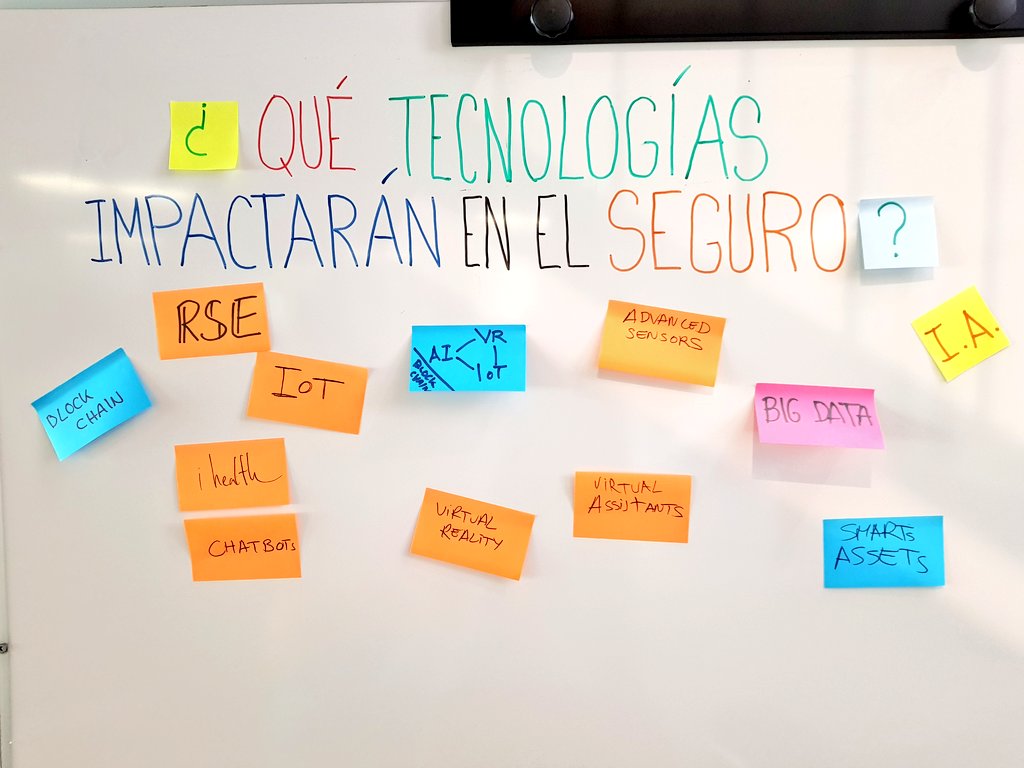 ¿ QUÉ TECNOLOGÍAS
IMPACTARÁN EN EL SEGURO ?
RSE
BLOCK
CHAIN
IoT
AI VR
IoT
BLOCK
CHAIN
ADVANCED
SENSORS
I.A.
BIG DATA
i health
CHATBOTs
VIRTUAL
REALITY
VIRTUAL
ASSiSTANTS
SMARTs
ASSETs